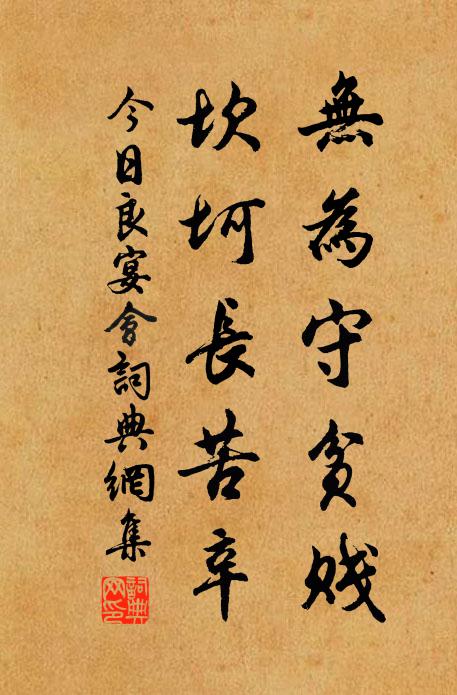 無為守貧賤
坎坷長苦辛
今日良宴會詞典網集
詞典網印